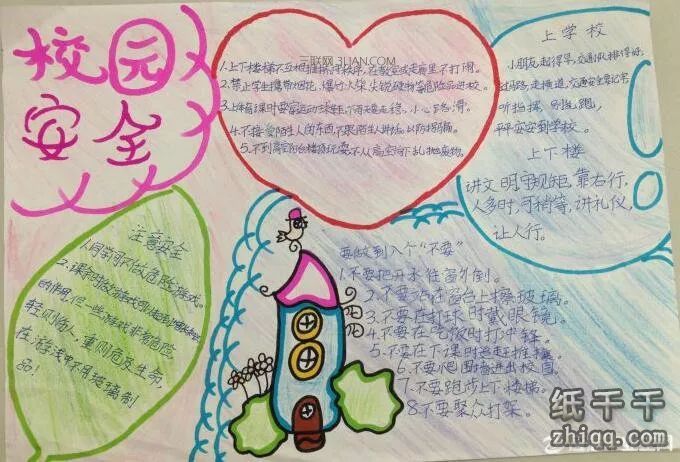 校园
安全
三联网 3LIAN.COM
1.上下楼梯不互相推挤,守秩序,在教室或走廊里不打闹。
2.禁止学生携带烟花、爆竹、火柴、尖锐硬物等危险品进校。
3.上体育课时要穿运动球鞋,下雨天走
小心路滑。
4.不接受陌生人的东西,不跟陌生人讲话,以防拐骗。
5.不到高空阳台楼顶玩耍,不从高空向下乱抛废物。
上学校
小朋友,起得早,交通队,排得好,
过马路,走横道,交通安全要记牢
听指挥,别乱跑,
平平安安到学校。
上下楼
讲文明,守规矩,靠右行,
人多时,可稍等,讲礼仪,
让人行。
注意安全
1.同学间不做危险游戏。
2.课余时做游戏
的作用,但一些游戏非常危险,
轻则伤人,重则危及生命,
在游戏中不用玻璃制
品!
要做到八个“不要”
1.不要把开水往窗外倒。
2.不要站在窗台上擦玻璃。
3.不要在打球时戴眼镜。
4.不要在吃饭时打冲锋。
5.不要在下课时追赶推搡。
6.不要爬围墙进出校园。
7.不要跑步上下楼梯。
8.不要聚众打架。
纸千千
zhiqq.com